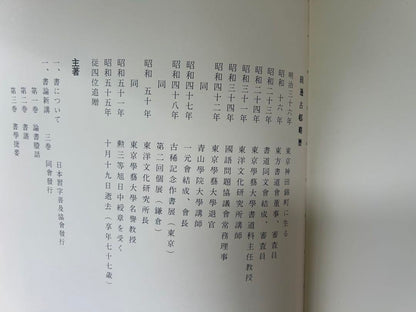 田邊古邨略歴
明治三十六年　東京神田錦町に生る
昭和十六年　東方書道會董事、審査員
昭和二十三年　書道同文會結成、審査員
昭和二十四年　東京學藝大學書道科主任教授
昭和三十四年　東洋文化研究所講師
昭和三十四年　國語問題協議會常務理事
昭和四十二年　東京學藝大學退官
同　青山學院大學講師
昭和四十七年　一元會結成、會長
昭和四十八年　古稀記念作書展（東京）
同　第二回個展（鎌倉）
昭和五十年　東洋文化研究所長
同　東京學藝大學名譽教授
昭和五十一年　勲三等旭日中綬章を受く
昭和五十五年　十月十九日逝去（享年七十七歳）
從四位追贈
主著
一、書について　日本習字普及協會發行
一、書論新講　三卷　同會發行
第一卷　論書賸話
第二卷　書譜
第三卷　書學捷要